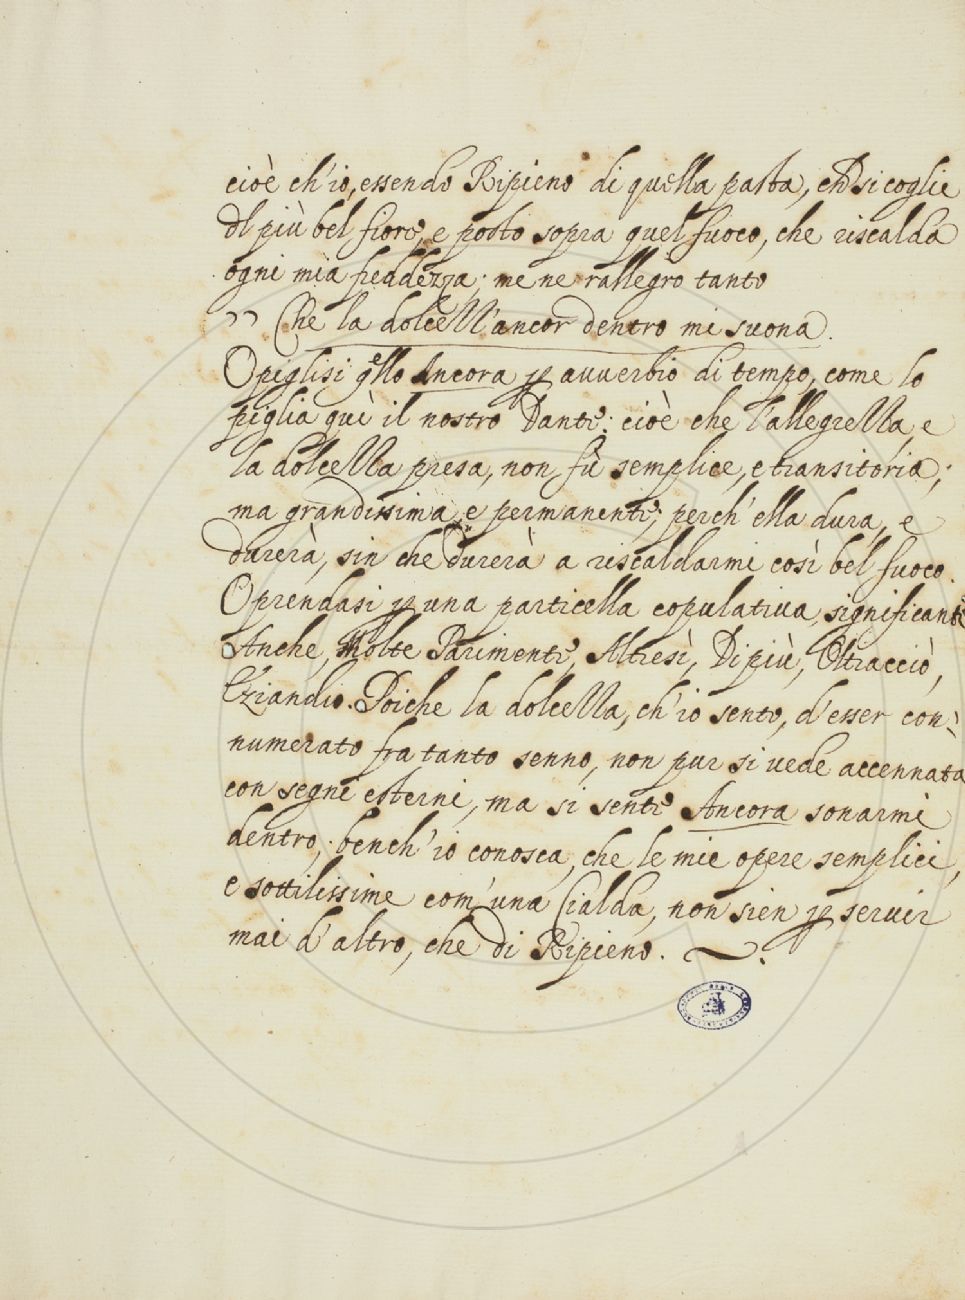 cioè ch'io, essendo Ripieno di quella pasta, ch si coglie
Il più bel fiore, e posto sopra quel fuoco, che riscalda
ogni mia freddezza; me ne rallegro tanto
" Che la dolcezza ancor dentro mi suona.
O piglisi qllo Ancora p avverbio di tempo, come lo
piglia quì il nostro Dante: cioè che l'allegrezza, e
la dolcezza presa, non fù semplice, e transitoria;
ma grandissima, e permanente; perch'ella dura, e
durerà, sin che durerà a riscaldarmi così bel fuoco.
O prendasi p una particella copulativa, significante
Anche, Molte Parimente, Altresì, Di più, Oltracciò,
Eziandio. Poiche la dolcezza, ch'io sento, d'esser con-
numerato fra tanto senno, non pur si vede accennata
con segni esterni, ma si sente Ancora sonarmi
dentro; bench'io conosca, che le mie opere semplici,
e sottilissime com'una Cialda, non sien p servir
mai d'altro, che di Ripieno.